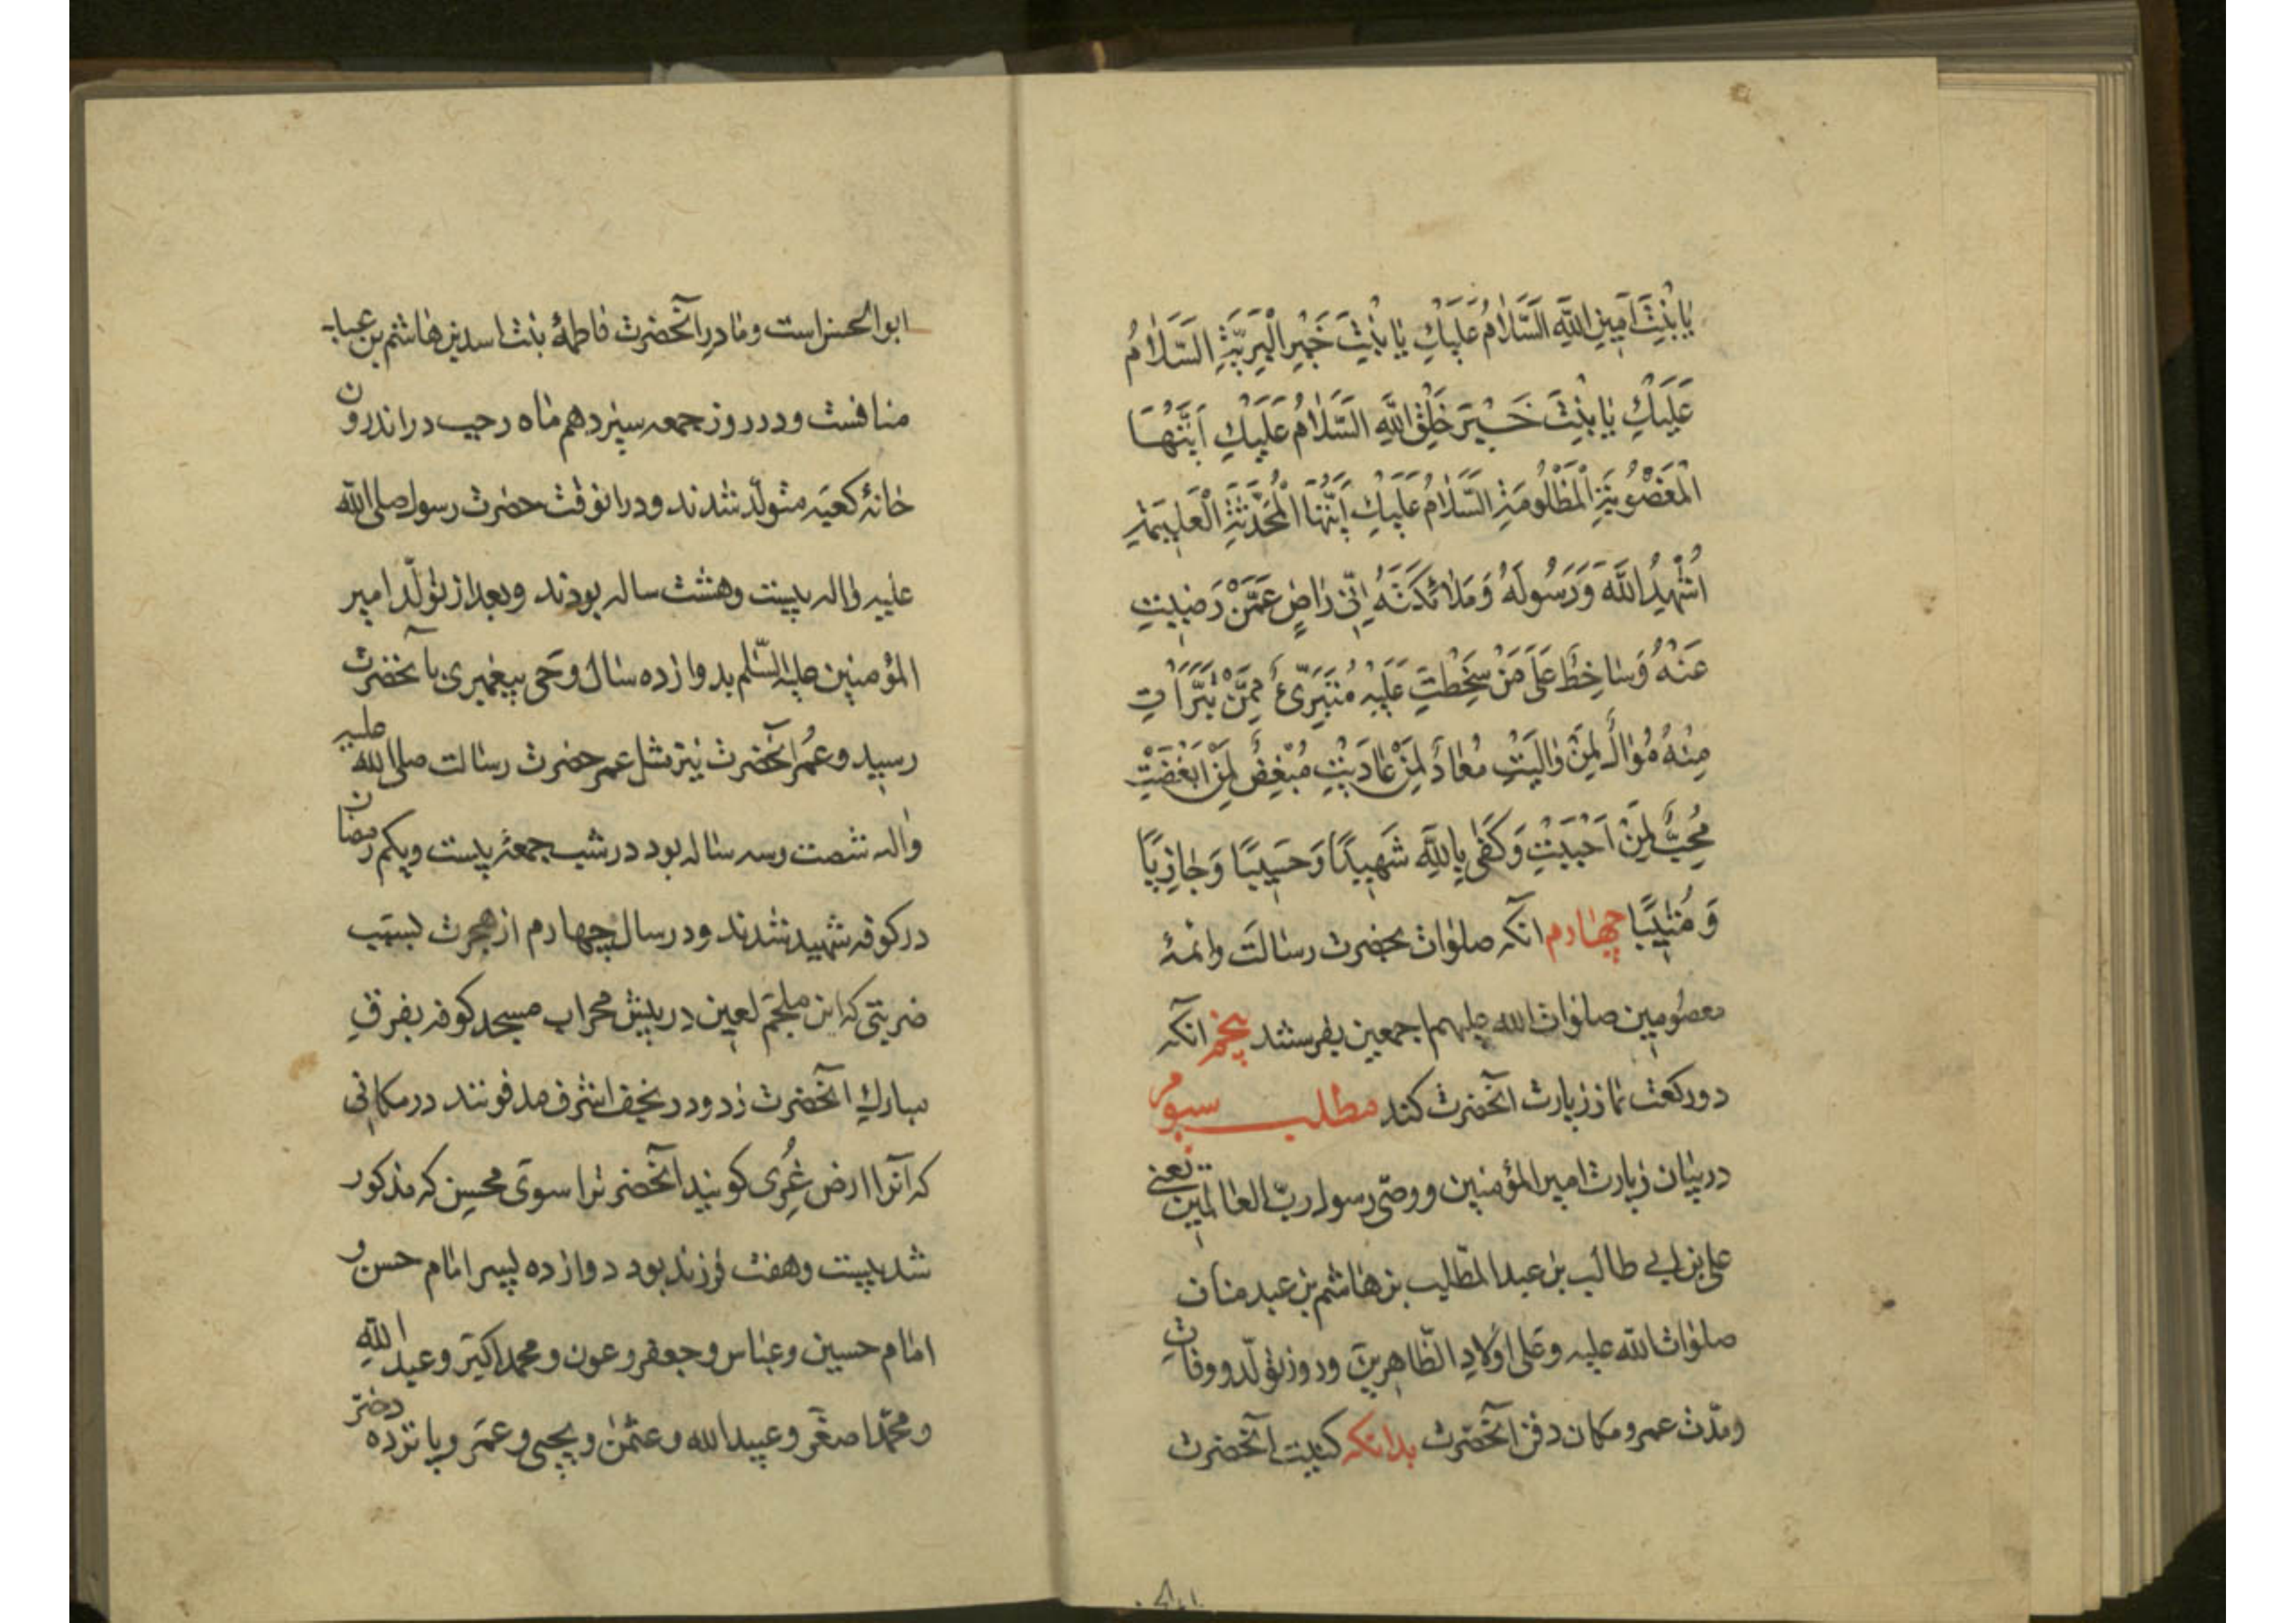 يَا بِنْتَ اَمِينِ اللَّهِ اَلسَّلَامُ عَلَيْكِ يَا بِنْتَ خَيْرِ الْبَرِيَّةِ السَّلَامُ
عَلَيْكِ يَا بِنْتَ خَيْرِ خَلْقِ اللَّهِ السَّلَامُ عَلَيْكِ اَيَّتُهَا
الْمَغْصُوبَةِ الْمَظْلُومَةِ السَّلَامُ عَلَيْكِ اَيَّتُهَا الْمُحَدَّثَةِ الْعَلِيمَةِ
اُشْهِدُ اللَّهَ وَرَسُولَهُ وَمَلَائِكَتَهُ اِنّي رَاضٍ عَمَّنْ رَضِيتِ
عَنْهُ وَسَاخِطٌ عَلَى مَنْ سَخِطْتِ عَلَيْهِ مُتَبَرِّئٌ مِمَّنْ تَبَرَّاْتِ
مِنْهُ مُوَالٍ لِمَنْ وَالَيْتِ مُعَادٍ لِمَنْ عَادَيْتِ مُبْغِضٌ لِمَنْ اَبْغَضْتِ
مُحِبٌّ لِمَنْ اَحْبَبْتِ وَكَفَى بِاللَّهِ شَهِيدًا وَحَسِيبًا وَجَازِيًا
وَمُثِيبًا چهارم آنکه صلوات بحضرت رسالت وائمهٔ
معصومین صلوات الله علیهم اجمعین بفرستند پنجم آنکه
دو رکعت نماز زیارت آنحضرت کند مطلب سیوم
در بیان زیارت امیر المؤمنین ووصّی رسول ربّ العالمین یعنی
علی بن ابی طالب بن عبد المطّلب بن هاشم بن عبد مناف
صلوات الله علیه وعلی اولادِ الطّاهرین وروز تولّد ووفات
ومدّت عمر ومکان دفن آنحضرت بدانکه کنیت آنحضرت
ابوالحسن است ومادر آنحضرت فاطمهٔ بنت اسد بن هاشم بن عبد
منافست ودر روز جمعه سیزدهم ماه رجب در اندرون
خانهٔ کعبه متولّد شدند ودر انوقت حضرت رسول صلی الله
علیه واله بیست وهشت ساله بودند وبعد از تولّد امیر
المؤمنین علیه السّلم بدوازده سال وحی پیغمبری بآنحضرت
رسید وعُمر آنحضرت نیز مثل عمر حضرت رسالت صلی الله علیه
واله شصت وسه ساله بود در شب جمعهٔ بیست ویکم رمضان
در کوفه شهید شدند ودر سال چهارم از هجرت بسبب
ضربتی که ابن ملجم لعین در پیش محراب مسجد کوفه بفرق
مبارک آنحضرت زد ودر نجف اشرف مدفونند در مکانی
که آنرا ارض غری کویند آنحضرترا سوی محسن که مذکور
شد بیست وهفت فرزند بود دوازده پسر امام حسن و
امام حسین وعباس وجعفر وعون ومحمد اکبر وعبد الله
ومحمّد اصغر وعبید الله وعثمن ویحیی وعمر وپانزده دختر